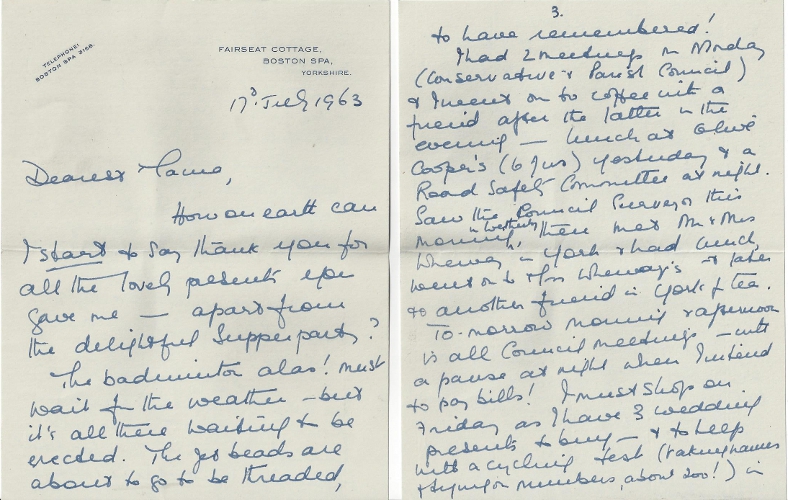 TELEPHONE:
BOSTON SPA 2168.
FAIRSEAT COTTAGE,
BOSTON SPA,
YORKSHIRE.
17th July 1963
Dearest
How on earth can
I start to say thank you for
all the lovely presents you
gave me — apart from
the delightful supper party?
The badminton alas! must
wait for the weather — but
it's all there waiting to be
erected. The jet beads are
about to go to be threaded,
3.
to have remembered!
I had 2 meetings on Monday
(Conservative & Parish Council)
& I went on to coffee with a
friend after the latter in the
evening — lunch at Olive
Cooper's (6 of us) yesterday & a
Road Safety Committee at night.
Saw the Council Surveyor this
morning in Wetherby, then met Mr & Mrs
in York & had lunch,
went on to & later
to another friend in York for tea.
To-morrow morning & afternoon
is all Council meetings — with
a pause at night when I intend
to pay bills! I must shop on
Friday as I have 3 wedding
presents to buy — & to help
with a cycling test (taking names
& tying on numbers, about 200!) in